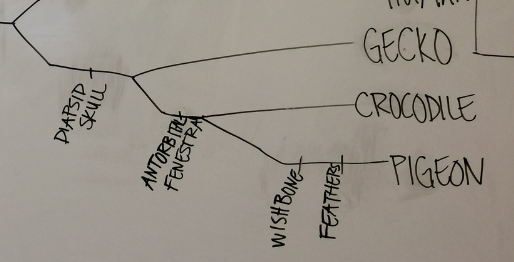 HUMAN
GECKO
DIAPSID
SKULL
CROCODILE
ANTORBITAL
FENESTRA
PIGEON
WISHBONE
FEATHERS